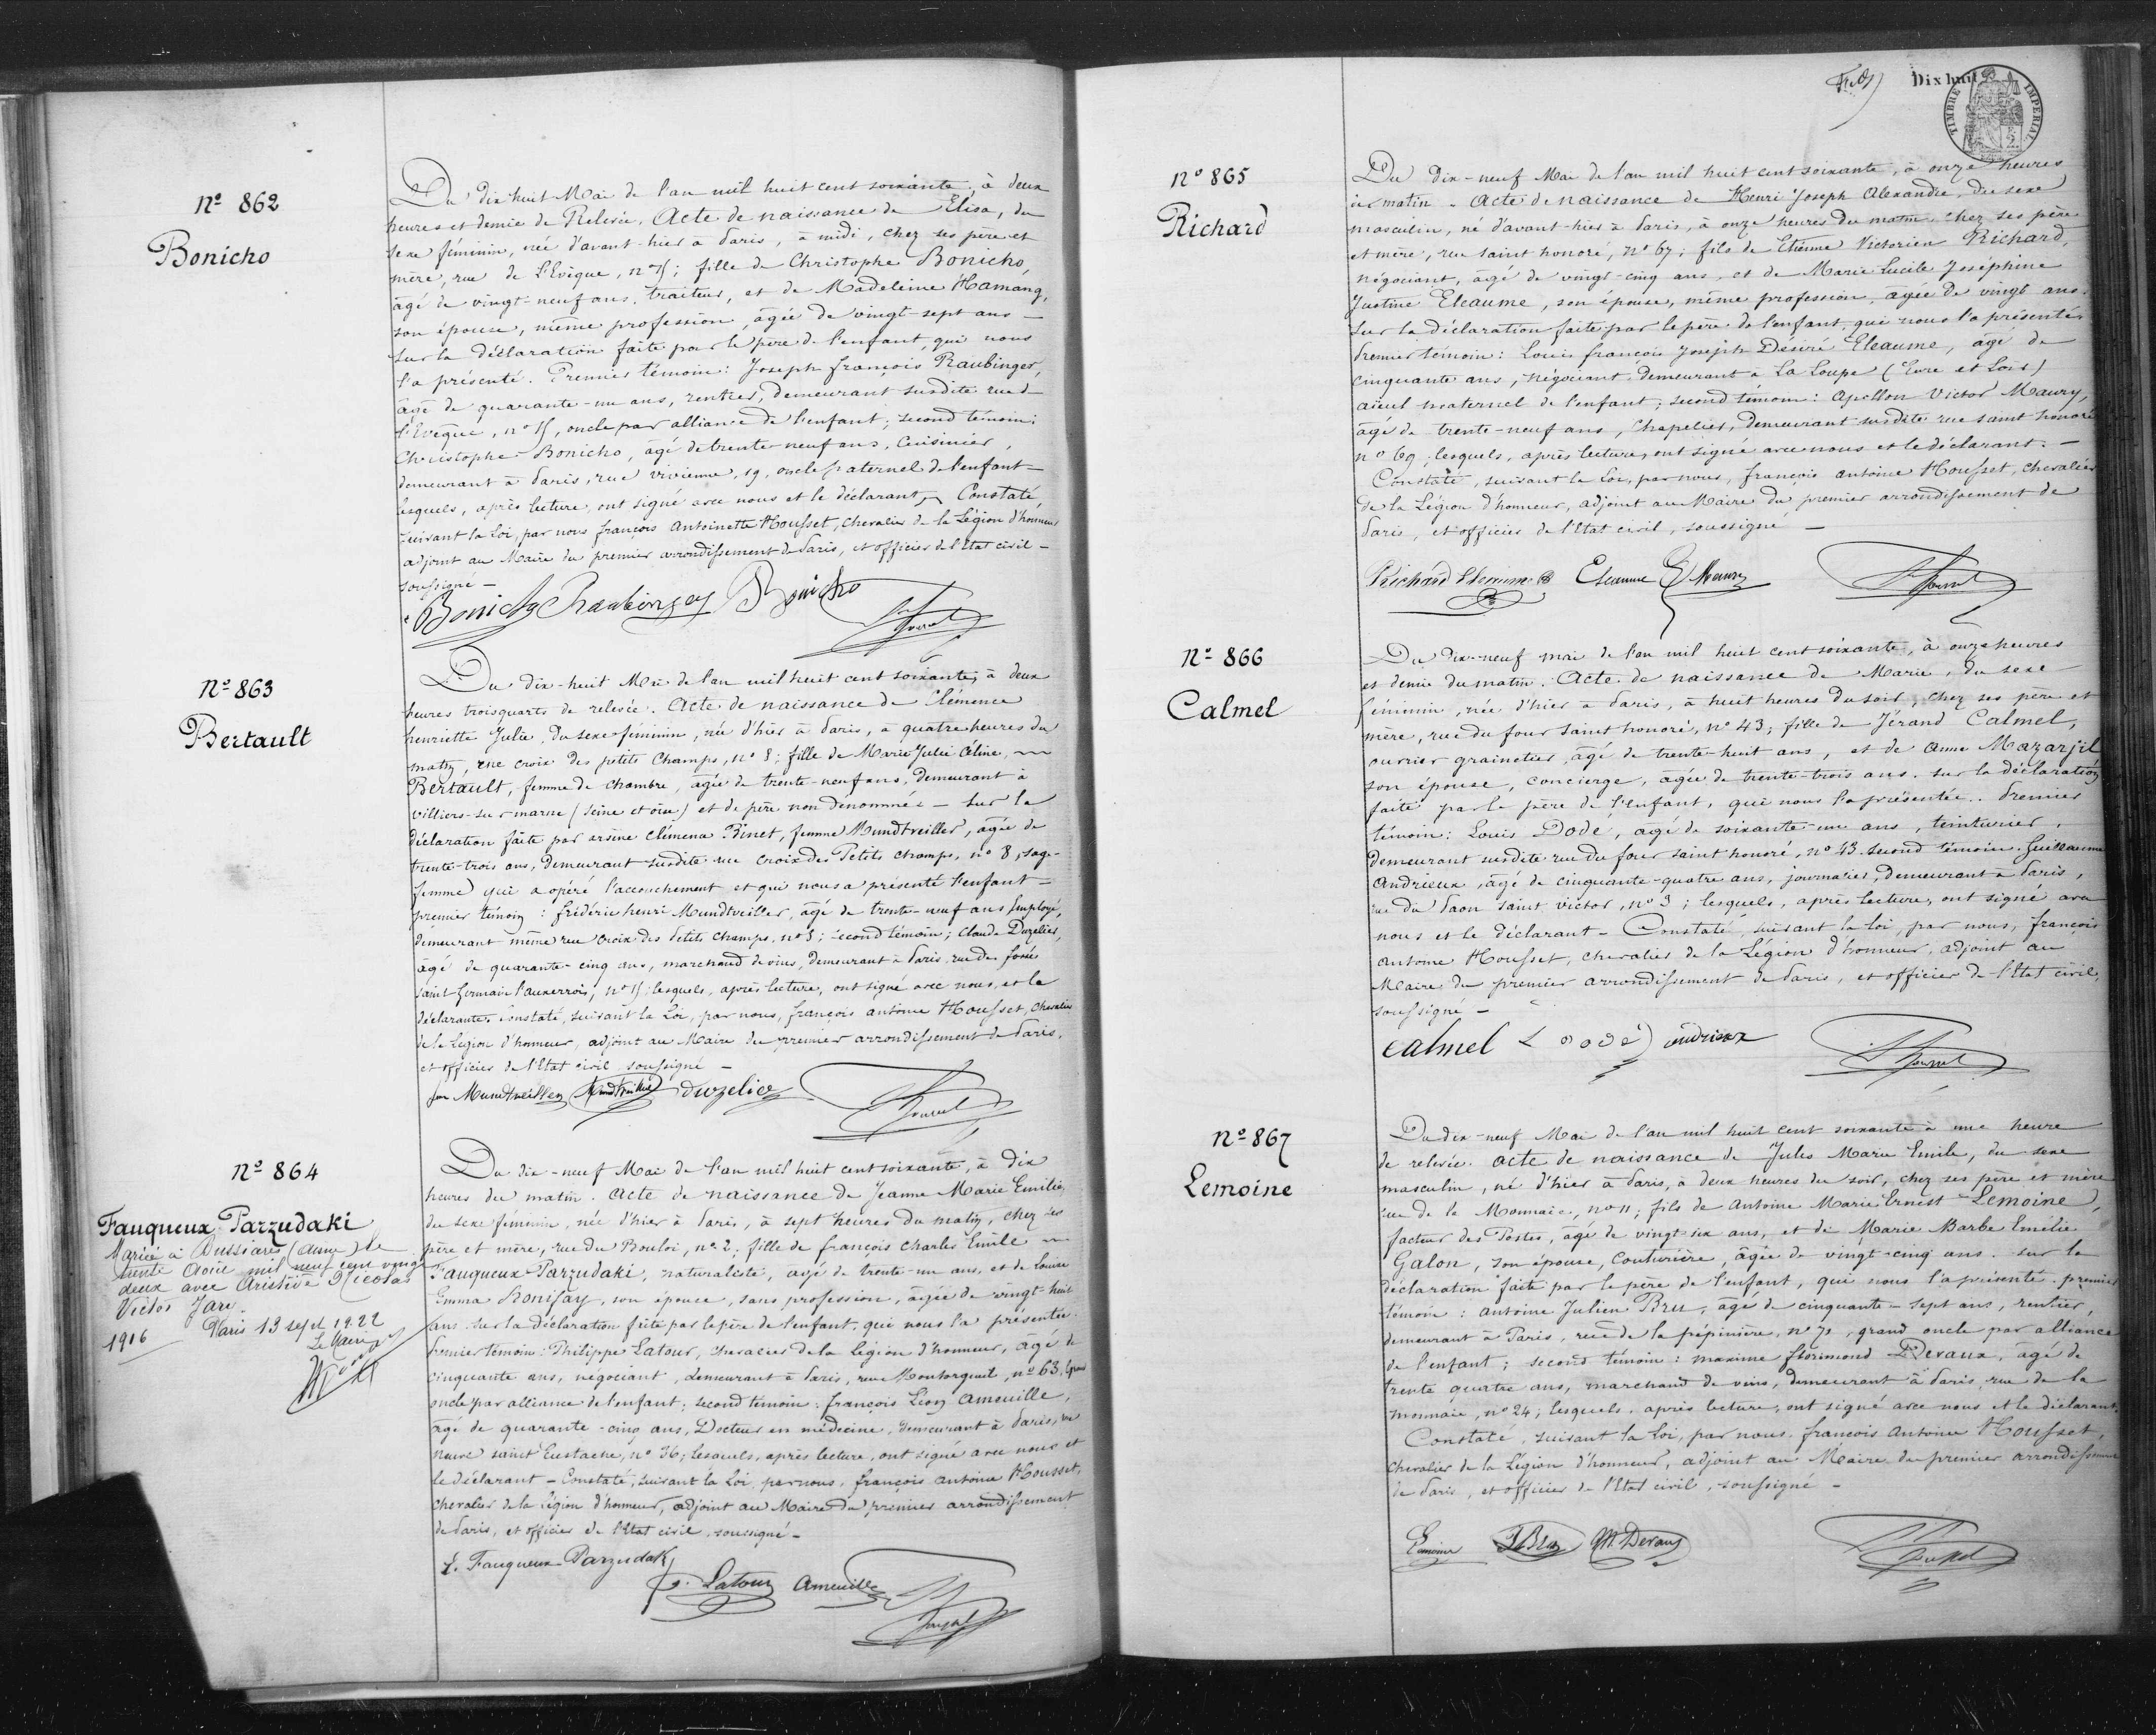 Nº 862
Bonicho
Du dix huit Mai de l'an mil huit cent soixante, à deux
heures et demie de Relevée. Acte de naissance de Elisa, du
sexe féminin, née d'avant-hier à Paris, à midi, chez ses père et
mère, rue de L'Evêque, nº 15; fille de Christophe Bonicho,
âgé de vingt-neuf ans, traiteur, et de Madeleine Hamang,
son épouse, même profession, âgée de vingt-sept ans —
Sur la déclaration faite par le père de l'enfant, qui nous
l'a présenté. Premier témoin: Joseph françois Raubinger,
âgé de quarante-un ans, rentier, demeurant susdite rue de
l'Evêque, nº 15, oncle par alliance de l'enfant; second témoin:
Christophe Bonicho, âgé de trente-neuf ans, Cuisinier,
demeurant à Paris, rue vivienne, 19, oncle paternel de l'enfant —
lesquels, après lecture, ont signé avec nous et le déclarant. Constaté,
suivant la Loi, par nous françois Antoinette Housset, chevalier de la Légion d'honneur
adjoint au Maire du premier arrondissement de Paris, et officier de l'Etat civil —
soussigné —
Bonicho Raubinger Bonicho
Nº 863
Bertault
Du dix-huit Mai de l'an mil huit cent soixante, à deux
heures trois quarts de relevée. Acte de naissance de Clémence
henriette Julie, du sexe féminin, née d'hier à Paris, à quatre heures du
matin, rue croix des petits Champs, nº 8; fille de Marie Julie Céline
Bertault, femme de chambre, âgée de trente-neuf ans, demeurant à
villiers-sur-marne (Seine et oise) et de père non dénommé — Sur la
déclaration faite par arsène clémence Binet, femme Mundtveiller, âgée de
trente-trois ans, demeurant susdite rue croix des Petits champs, nº 8, sage-
femme qui a opéré l'accouchement et qui nous a présenté l'enfant —
premier témoin: frédéric henri Mundtveiller, âgé de trente-neuf ans Employé,
demeurant même rue croix des Petits champs, nº 8; second témoin; Claude Duzelier,
âgé de quarante-cinq ans, marchand de vins, demeurant à Paris, rue des fossés
saint Germain l'auxerrois, nº 15; lesquels, après lecture, ont signé avec nous, et la
déclarante. Constaté, suivant la Loi, par nous, françois antoine Housset, chevalier
de la Légion d'honneur, adjoint au Maire du premier arrondissement de Paris,
et officier de l'Etat civil soussigné —
fme Mundtveiller Mundtveiller Duzelier
Nº 864
Fauqueux-Parzudaki
Mariée à Bussiares (Aisne) le
trente Avril mil neuf cent vingt
deux avec Aristide Nicolas
Victor Jary.
Paris 13 sept 1922
1916
Le Maire
Du dix-neuf Mai de l'an mil huit cent soixante, à dix
heures du matin. Acte de naissance de Jeanne Marie Emilie,
du sexe féminin, née d'hier à Paris, à sept heures du matin, chez ses
père et mère, rue du Bouloi, nº 2; fille de françois Charles Emile
Fauqueux-Parzudaki, naturaliste, âgé de trente-un ans, et de Louise
Emma Bonifay, son épouse, sans profession, âgée de vingt-huit
ans. Sur la déclaration faite par le père de l'enfant, qui nous l'a présentée.
Premier témoin: Philippe Latour, chevalier de la Légion d'honneur, âgé de
cinquante ans, négociant, demeurant à Paris, rue Montorgueil, nº 63, grand
oncle par alliance de l'enfant; second témoin: françois Léon Ameuille,
âgé de quarante-cinq ans, Docteur en médecine, demeurant à Paris, rue
neuve saint Eustache, nº 36; lesquels, après lecture, ont signé avec nous et
le déclarant — Constaté, suivant la Loi, par nous, françois antoine Housset,
chevalier de la Légion d'honneur, adjoint au Maire du premier arrondissement
de Paris, et officier de l'Etat civil, soussigné —
E. Fauqueux-Parzudaki
P. Latour Ameuille
Dix huit
TIMBRE IMPERIAL
nº 865
Richard
Du dix-neuf Mai de l'an mil huit cent soixante, à onze heures
du matin. Acte de naissance de Henri Joseph Alexandre, du sexe
masculin, né d'avant-hier à Paris, à onze heures du matin, chez ses père
et mère, rue saint honoré, nº 67; fils de Etienne Victorien Richard,
négociant, âgé de vingt-cinq ans, et de Marie Lucile Joséphine
Justine Eleaume, son épouse, même profession, âgée de vingt ans.
Sur la déclaration faite par le père de l'enfant, qui nous l'a présenté.
Premier témoin: Louis françois Joseph Désiré Eleaume, âgé de
cinquante ans, négociant, demeurant à La Loupe (Eure et Loir)
aïeul maternel de l'enfant; second témoin: Apollon Victor Maury,
âgé de trente-neuf ans, Chapelier, demeurant susdite rue saint honoré
nº 69, lesquels, après lecture, ont signé avec nous et le déclarant. —
Constaté, suivant la Loi, par nous, françois antoine Housset, chevalier
de la Légion d'honneur, adjoint au Maire du premier arrondissement de
Paris, et officier de l'Etat civil, soussigné —
Richard Eleaume Maury
Nº 866
Calmel
Du dix-neuf mai de l'an mil huit cent soixante, à onze heures
et demie du matin. Acte de naissance de Marie, du sexe
féminin, née d'hier à Paris, à huit heures du soir, chez ses père et
mère, rue du four saint honoré, nº 43; fille de Jérand Calmel,
ouvrier grainetier, âgé de trente-huit ans, et de Anne Mazarjil
son épouse, concierge, âgée de trente-trois ans. Sur la déclaration
faite par le père de l'enfant, qui nous l'a présentée. Premier
témoin: Louis Dodé, âgé de soixante-un ans, teinturier,
demeurant susdite rue du four saint honoré, nº 43. Second témoin. Guillaume
Andrieux, âgé de cinquante-quatre ans, journalier, demeurant à Paris,
rue du Paon saint victor, nº 3; lesquels, après lecture, ont signé avec
nous et le déclarant — Constaté, suivant la loi, par nous, françois
antoine Housset, chevalier de la Légion d'honneur, adjoint au
Maire du premier arrondissement de Paris, et officier de l'Etat civil,
soussigné —
calmel L Dodé andrieux
Nº 867
Lemoine
Du dix-neuf Mai de l'an mil huit cent soixante à une heure
de relevée. acte de naissance de Jules Marie Emile, du sexe
masculin, né d'hier à Paris, à deux heures du soir, chez ses père et mère
rue de la Monnaie, nº 11; fils de Antoine Marie Ernest Lemoine,
facteur des Postes, âgé de vingt-six ans, et de Marie Barbe Emilie
Galon, son épouse, Couturière, âgée de vingt-cinq ans. Sur la
déclaration faite par le père de l'enfant, qui nous l'a présenté. premier
témoin: antoine Julien Bru, âgé de cinquante-sept ans, rentier,
demeurant à Paris, rue de la pépinière, nº 72, grand oncle par alliance
de l'enfant; second témoin: maxime florimond Devaux, âgé de
trente quatre ans, marchand de vins, demeurant à Paris, rue de la
monnaie, nº 24; lesquels, après lecture, ont signé avec nous et le déclarant.
Constaté, suivant la Loi, par nous, françois Antoine Housset,
Chevalier de la Légion d'honneur, adjoint au Maire du premier arrondissement
de Paris, et officier de l'Etat civil, soussigné —
Lemoine JBru M. Devaux